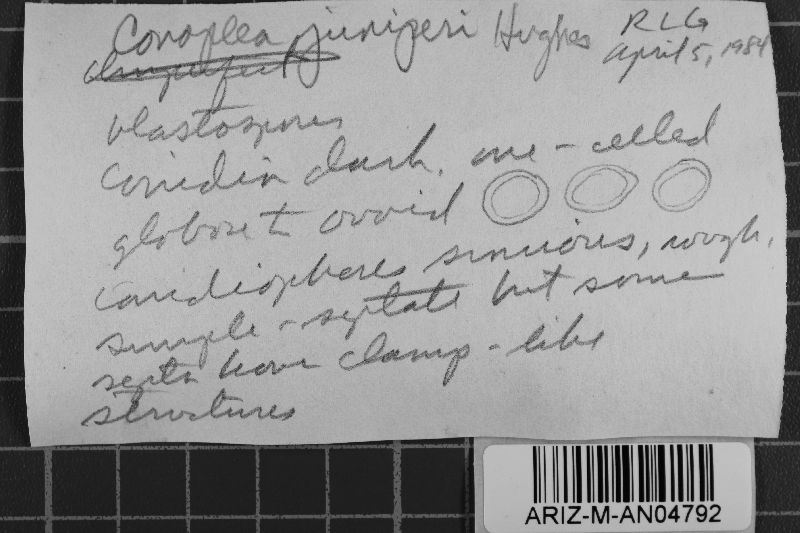 Conoplea juniperi Hughes RLG
April 5, 1984
blastospores
conidia dark, one-celled
globose to ovoid
conidiophores sinuous, rough,
simple-septate but some
septa have clamp-like
structures
ARIZ-M-AN04792